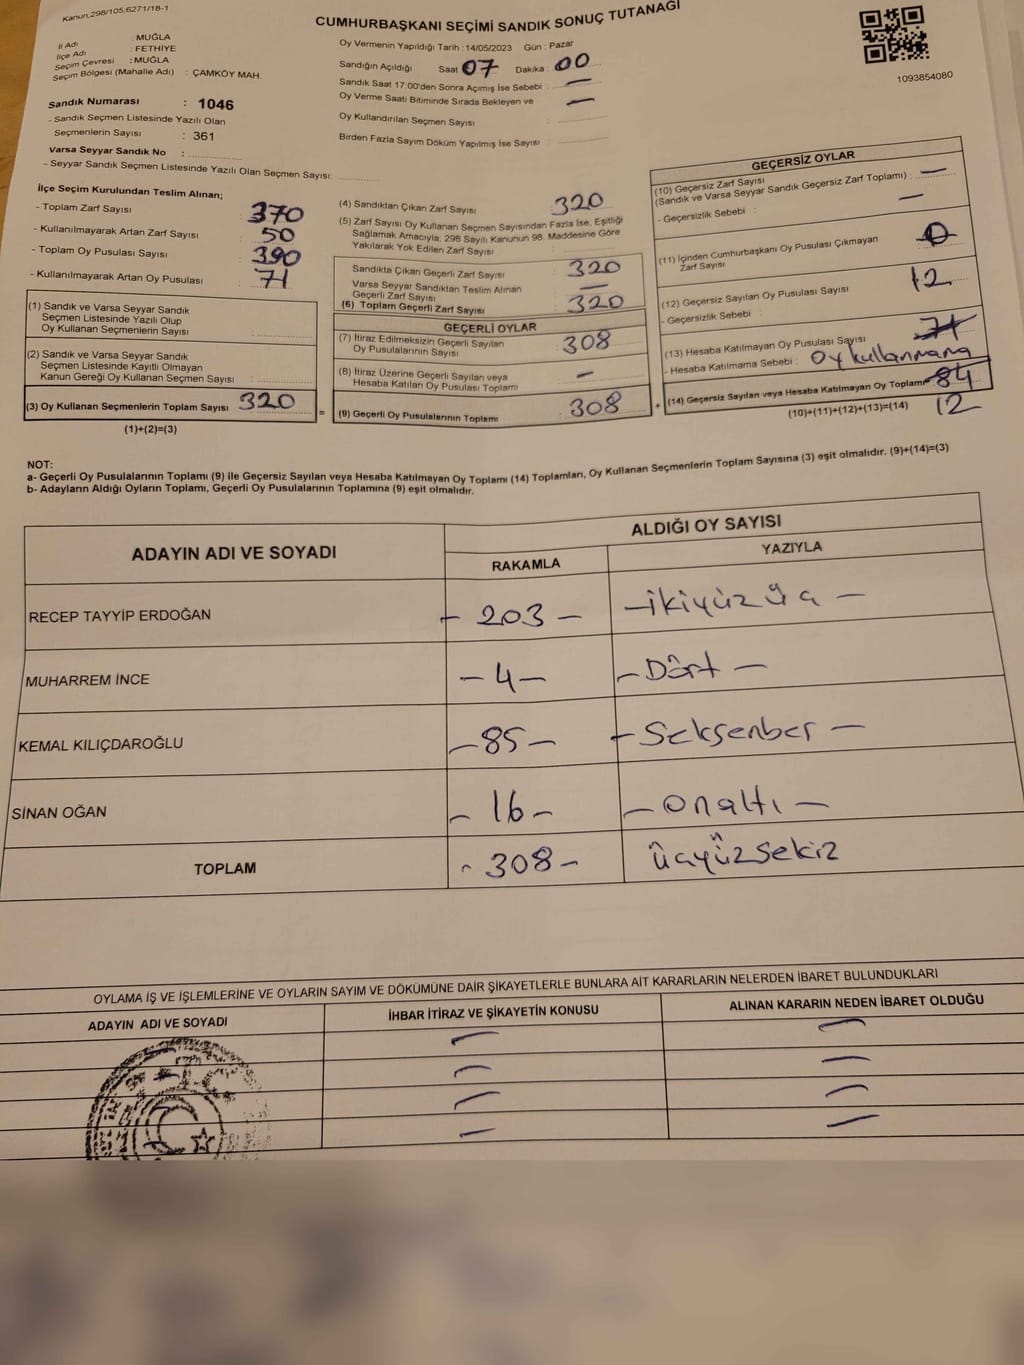 Kanun:298/105,6271/18-1
CUMHURBAŞKANI SEÇİMİ SANDIK SONUÇ TUTANAĞI
İl Adı : MUĞLA
İlçe Adı : FETHİYE
Seçim Çevresi : MUĞLA
Seçim Bölgesi (Mahalle Adı) : ÇAMKÖY MAH.
Sandık Numarası : 1046
- Sandık Seçmen Listesinde Yazılı Olan
Seçmenlerin Sayısı : 361
Varsa Seyyar Sandık No :
- Seyyar Sandık Seçmen Listesinde Yazılı Olan Seçmen Sayısı:
Oy Vermenin Yapıldığı Tarih : 14/05/2023 Gün : Pazar
Sandığın Açıldığı Saat 07 Dakika : 00
Sandık Saat 17:00'den Sonra Açımış İse Sebebi : —
Oy Verme Saati Bitiminde Sırada Bekleyen ve —
Oy Kullandırılan Seçmen Sayısı :
Birden Fazla Sayım Döküm Yapılmış İse Sayısı :
1093854080
İlçe Seçim Kurulundan Teslim Alınan;
- Toplam Zarf Sayısı : 370
- Kullanılmayarak Artan Zarf Sayısı : 50
- Toplam Oy Pusulası Sayısı : 390
- Kullanılmayarak Artan Oy Pusulası : 71
(1) Sandık ve Varsa Seyyar Sandık
Seçmen Listesinde Yazılı Olup
Oy Kullanan Seçmenlerin Sayısı :
(2) Sandık ve Varsa Seyyar Sandık
Seçmen Listesinde Kayıtlı Olmayan
Kanun Gereği Oy Kullanan Seçmen Sayısı :
(3) Oy Kullanan Seçmenlerin Toplam Sayısı : 320 =
(1)+(2)=(3)
(4) Sandıktan Çıkan Zarf Sayısı : 320
(5) Zarf Sayısı Oy Kullanan Seçmen Sayısından Fazla İse, Eşitliği
Sağlamak Amacıyla, 298 Sayılı Kanunun 98. Maddesine Göre
Yakılarak Yok Edilen Zarf Sayısı :
Sandıkta Çıkan Geçerli Zarf Sayısı : 320
Varsa Seyyar Sandıktan Teslim Alınan
Geçerli Zarf Sayısı : —
(6) Toplam Geçerli Zarf Sayısı : 320
GEÇERLİ OYLAR
(7) İtiraz Edilmeksizin Geçerli Sayılan
Oy Pusulalarının Sayısı : 308
(8) İtiraz Üzerine Geçerli Sayılan veya
Hesaba Katılan Oy Pusulası Toplamı : —
(9) Geçerli Oy Pusulalarının Toplamı : 308 +
GEÇERSİZ OYLAR
(10) Geçersiz Zarf Sayısı
(Sandık ve Varsa Seyyar Sandık Geçersiz Zarf Toplamı) : —
- Geçersizlik Sebebi : —
(11) İçinden Cumhurbaşkanı Oy Pusulası Çıkmayan
Zarf Sayısı : 0
(12) Geçersiz Sayılan Oy Pusulası Sayısı : 12
- Geçersizlik Sebebi :
(13) Hesaba Katılmayan Oy Pusulası Sayısı : 71
- Hesaba Katılmama Sebebi : Oy kullanmama
(14) Geçersiz Sayılan veya Hesaba Katılmayan Oy Toplamı 84
(10)+(11)+(12)+(13)=(14) 12
NOT:
a- Geçerli Oy Pusulalarının Toplamı (9) ile Geçersiz Sayılan veya Hesaba Katılmayan Oy Toplamı (14) Toplamları, Oy Kullanan Seçmenlerin Toplam Sayısına (3) eşit olmalıdır. (9)+(14)=(3)
b- Adayların Aldığı Oyların Toplamı, Geçerli Oy Pusulalarının Toplamına (9) eşit olmalıdır.
ADAYIN ADI VE SOYADI
ALDIĞI OY SAYISI
RAKAMLA YAZIYLA
RECEP TAYYİP ERDOĞAN - 203 - - ikiyüzüç -
MUHARREM İNCE - 4 - - Dört -
KEMAL KILIÇDAROĞLU - 85 - - Seksenbeş -
SİNAN OĞAN - 16 - - onaltı -
TOPLAM - 308 - üçyüzsekiz
OYLAMA İŞ VE İŞLEMLERİNE VE OYLARIN SAYIM VE DÖKÜMÜNE DAİR ŞİKAYETLERLE BUNLARA AİT KARARLARIN NELERDEN İBARET BULUNDUKLARI
ADAYIN ADI VE SOYADI İHBAR İTİRAZ VE ŞİKAYETİN KONUSU ALINAN KARARIN NEDEN İBARET OLDUĞU
— —
— —
— —
— —